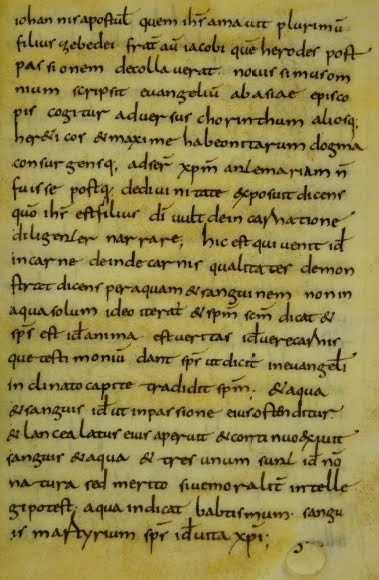 iohannis apostul quem ihs amavit plurimū
filius zebedei . frat aū iacobi quē herodes post
passionem decollaverat . novissimus om
nium scripsit evangeliū ab asiae episco
pis cogitur adversus chorinthum aliosq;
her&icos & maxime habeonitarum dogma
consurgensq; adser xpm ante mariam n̄
fuisse postq; de divinitate exposuit dicens
quō ihs est filius dī vult de incarnatione
diligenter narrare; hic est qui venit id
in carne deinde carnis qualitates demon
strat dicens per aquam & sanguinem non in
aqua solum ideo iterat & spm scm dicat &
sps est id anima . est veritas id vere carnis
que testimoniū dant sps ut dicit in evangeli
inclinato capite tradidit spm; & aqua
& sanguis id ut in passione eius ostenditur
& lancea latus eius aperuit & continuo exivit
sanguis & aqua & tres unum sunt id nō
natura sed merito sive moralit intelle
gi potest . aqua indicat babtismum . sangu
is martyrium sps id vita xpi;